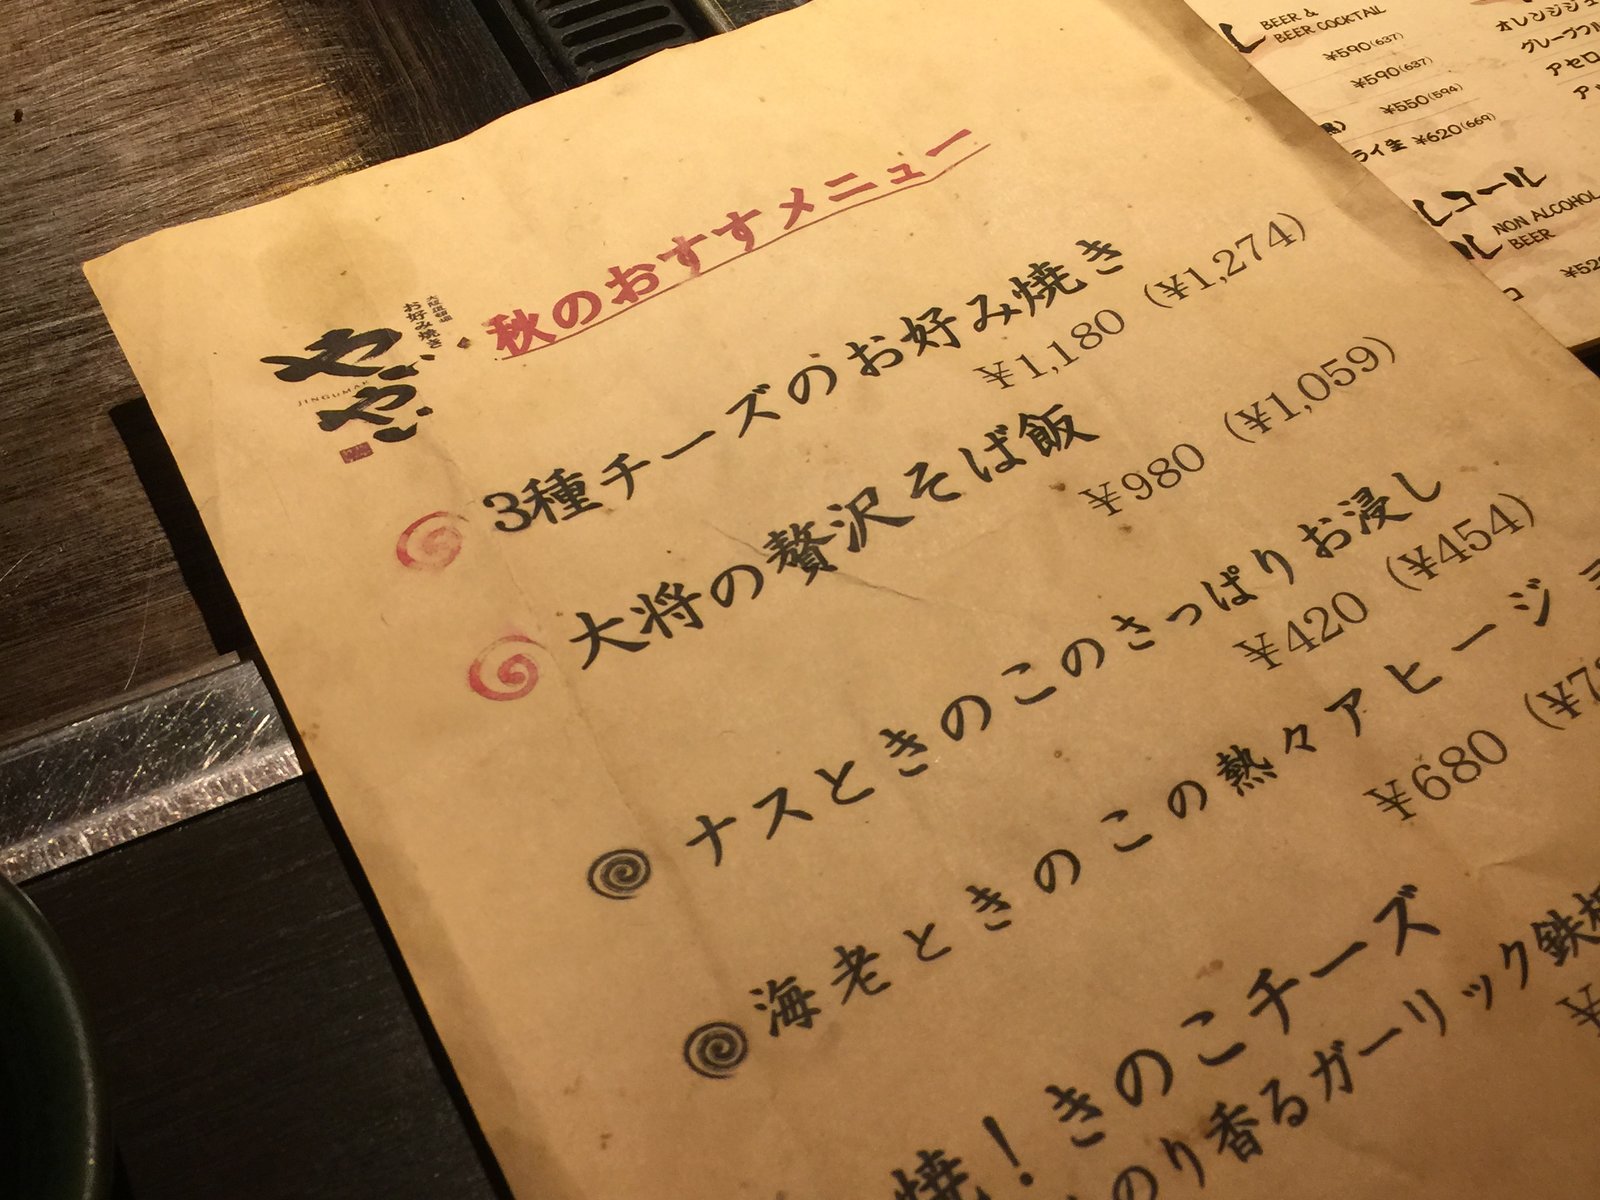 秋のおすすメニュー
お好み焼き
やい
やい
JINGUMAE
3種チーズのお好み焼き
¥1,180 (¥1,274)
大将の贅沢そば飯
¥980 (¥1,059)
ナスときのこのさっぱりお浸し
¥420 (¥454)
海老ときのこの熱々アヒージ
¥680 (¥7
焼！きのこチーズ
のり香るガーリック鉄
¥
BEER &
BEER COCKTAIL
¥590(637)
¥590(637)
¥550(594)
ライ生 ¥620(669)
ルコール
ル NON ALCOHOL
BEER
¥52
オレンジジュ
グレープフル
アセロ
ア